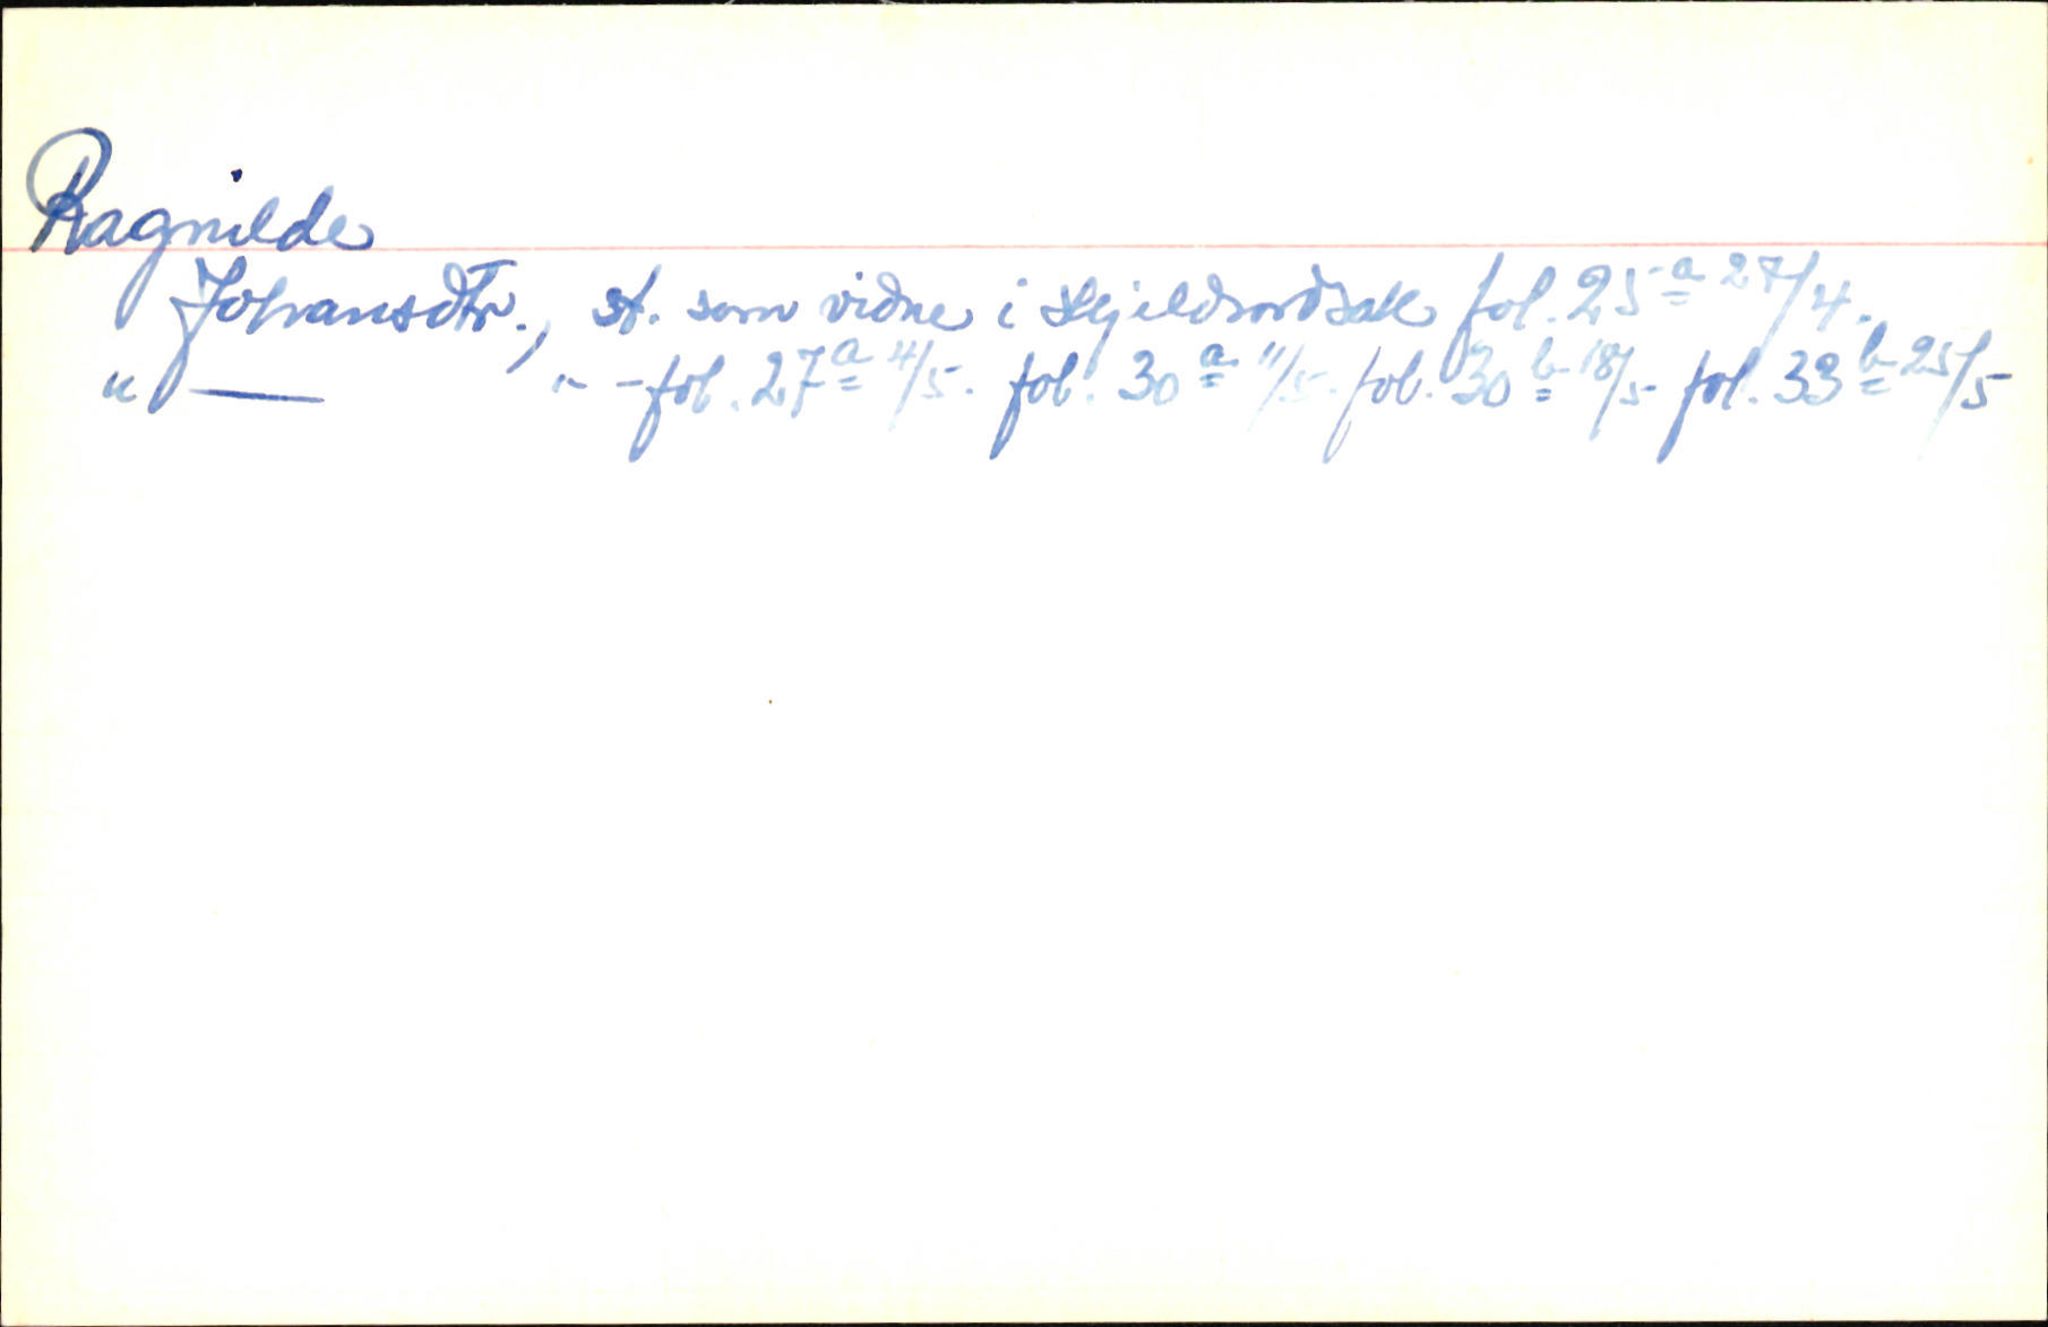 Ragnilde
Johansdtr., st. som vidne i skjeldsordsak fol. 25a 27/4.
" — " - fol. 27a 4/5. fol. 30a 11/5. fol. 30b 18/5 fol. 33b 25/5